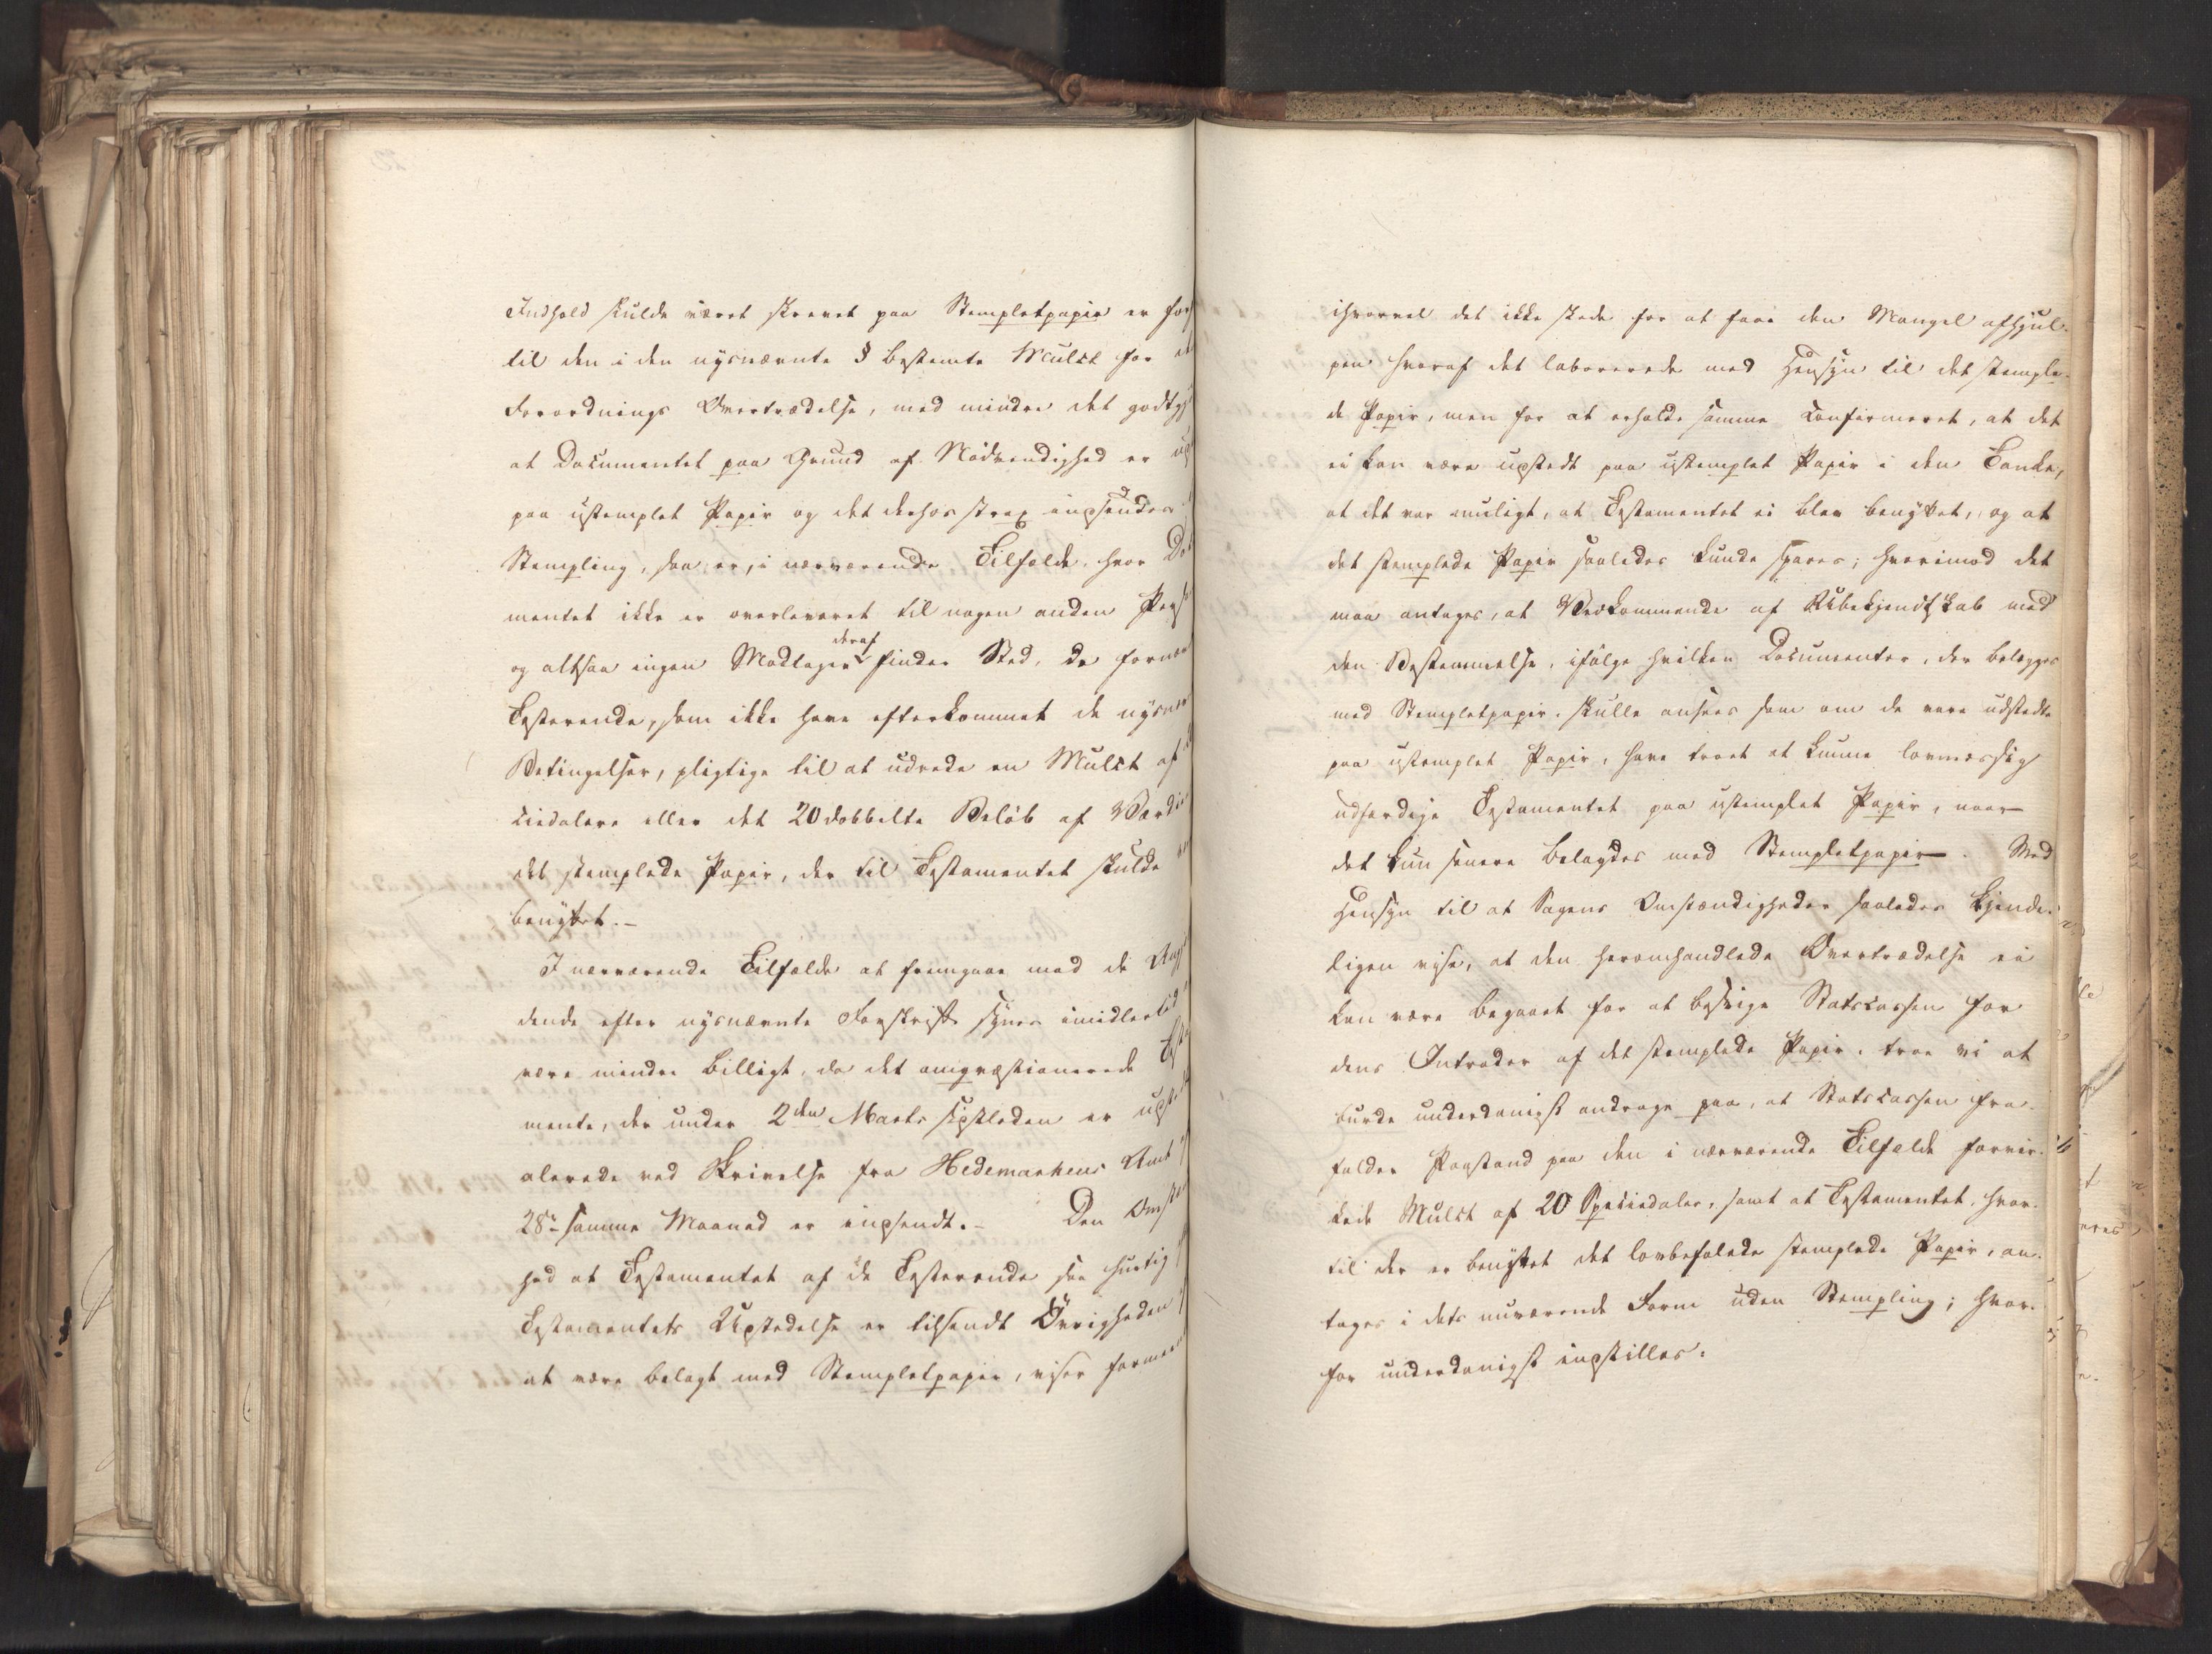 Indhold skulde været skrevet paa Stempletpapir er
til den i den nysnævnte § bestemte Mulct for
Forordnings Overtrædelse, med mindre det godtgj
at Documentet paa Grund af Nødvendighed er
paa ustemplet Papir og det derhos strax indsendes
Stempling, saa er, i nærværende Tilfælde, hvor Do
mentet ikke er overleveret til nogen anden Pers
og altsaa ingen Modtager deraf finder Sted, de fornæ
Testerende, som ikke have efterkommet de nysnæ
Betingelser, pligtige til at udrede en Mulct af
ciedalere eller det 20dobbelte Beløb af Værdi
det stemplede Papir, der til Testamentet skulde
benyttet.-
I nærværende Tilfælde at fremgaae med de
dende efter nysnævnte Forskrift synes imidlertid
være mindre billigt, da det omqvæstionerede Test
mente, der under 2den Marts sidstleden er udst
allerede ved Skrivelse fra Hedemarkens Amt
28de samme Maaned er indsendt.- Den Omst
hed at Testamentet af de Testerende saa hurtig
Testamentets Udstedelse er tilsendt Øvrigheden
at være belagt med Stempletpapir, viser formee
ihvorvel det ikke skede for at faae den Mangel afhjul-
pen hvoraf det laborerede med Hensyn til det stemple-
de Papir, men for at erholde samme confirmeret, at det
ei kan være udstedt paa ustemplet Papir i den Tanke,
at det var muligt, at Testamentet ei blev benyttet, og at
det stemplede Papir saaledes kunde spares; hvorimod det
maa antages, at Vedkommende af Ubekjendtskab med
den Bestemmelse, ifølge hvilken Documenter, der belægges
med Stempletpapir, skulle ansees som om de vare udstedte
paa ustemplet Papir, have troet at kunne lovmæssig
udfærdige Testamentet paa ustemplet Papir, naar
det kun senere belagdes med Stempletpapir. Med
Hensyn til at Sagens Omstændigheder saaledes kjende-
ligen vise, at den heromhandlede Overtrædelse ei
kan være begaaet for at besvige Statscassen for
dens Intrader af det stemplede Papir, troe vi at
burde underdanigst andrage paa, at Statscassen fra-
falder Paastand paa den i nærværende Tilfælde forvir-
kede Mulct af 20 Speciedaler, samt at Testamentet, hvor-
til der er benyttet det lovbefalede stemplede Papir, an-
tages i dets nuværende Form uden Stempling; hvor-
for underdanigst indstilles: